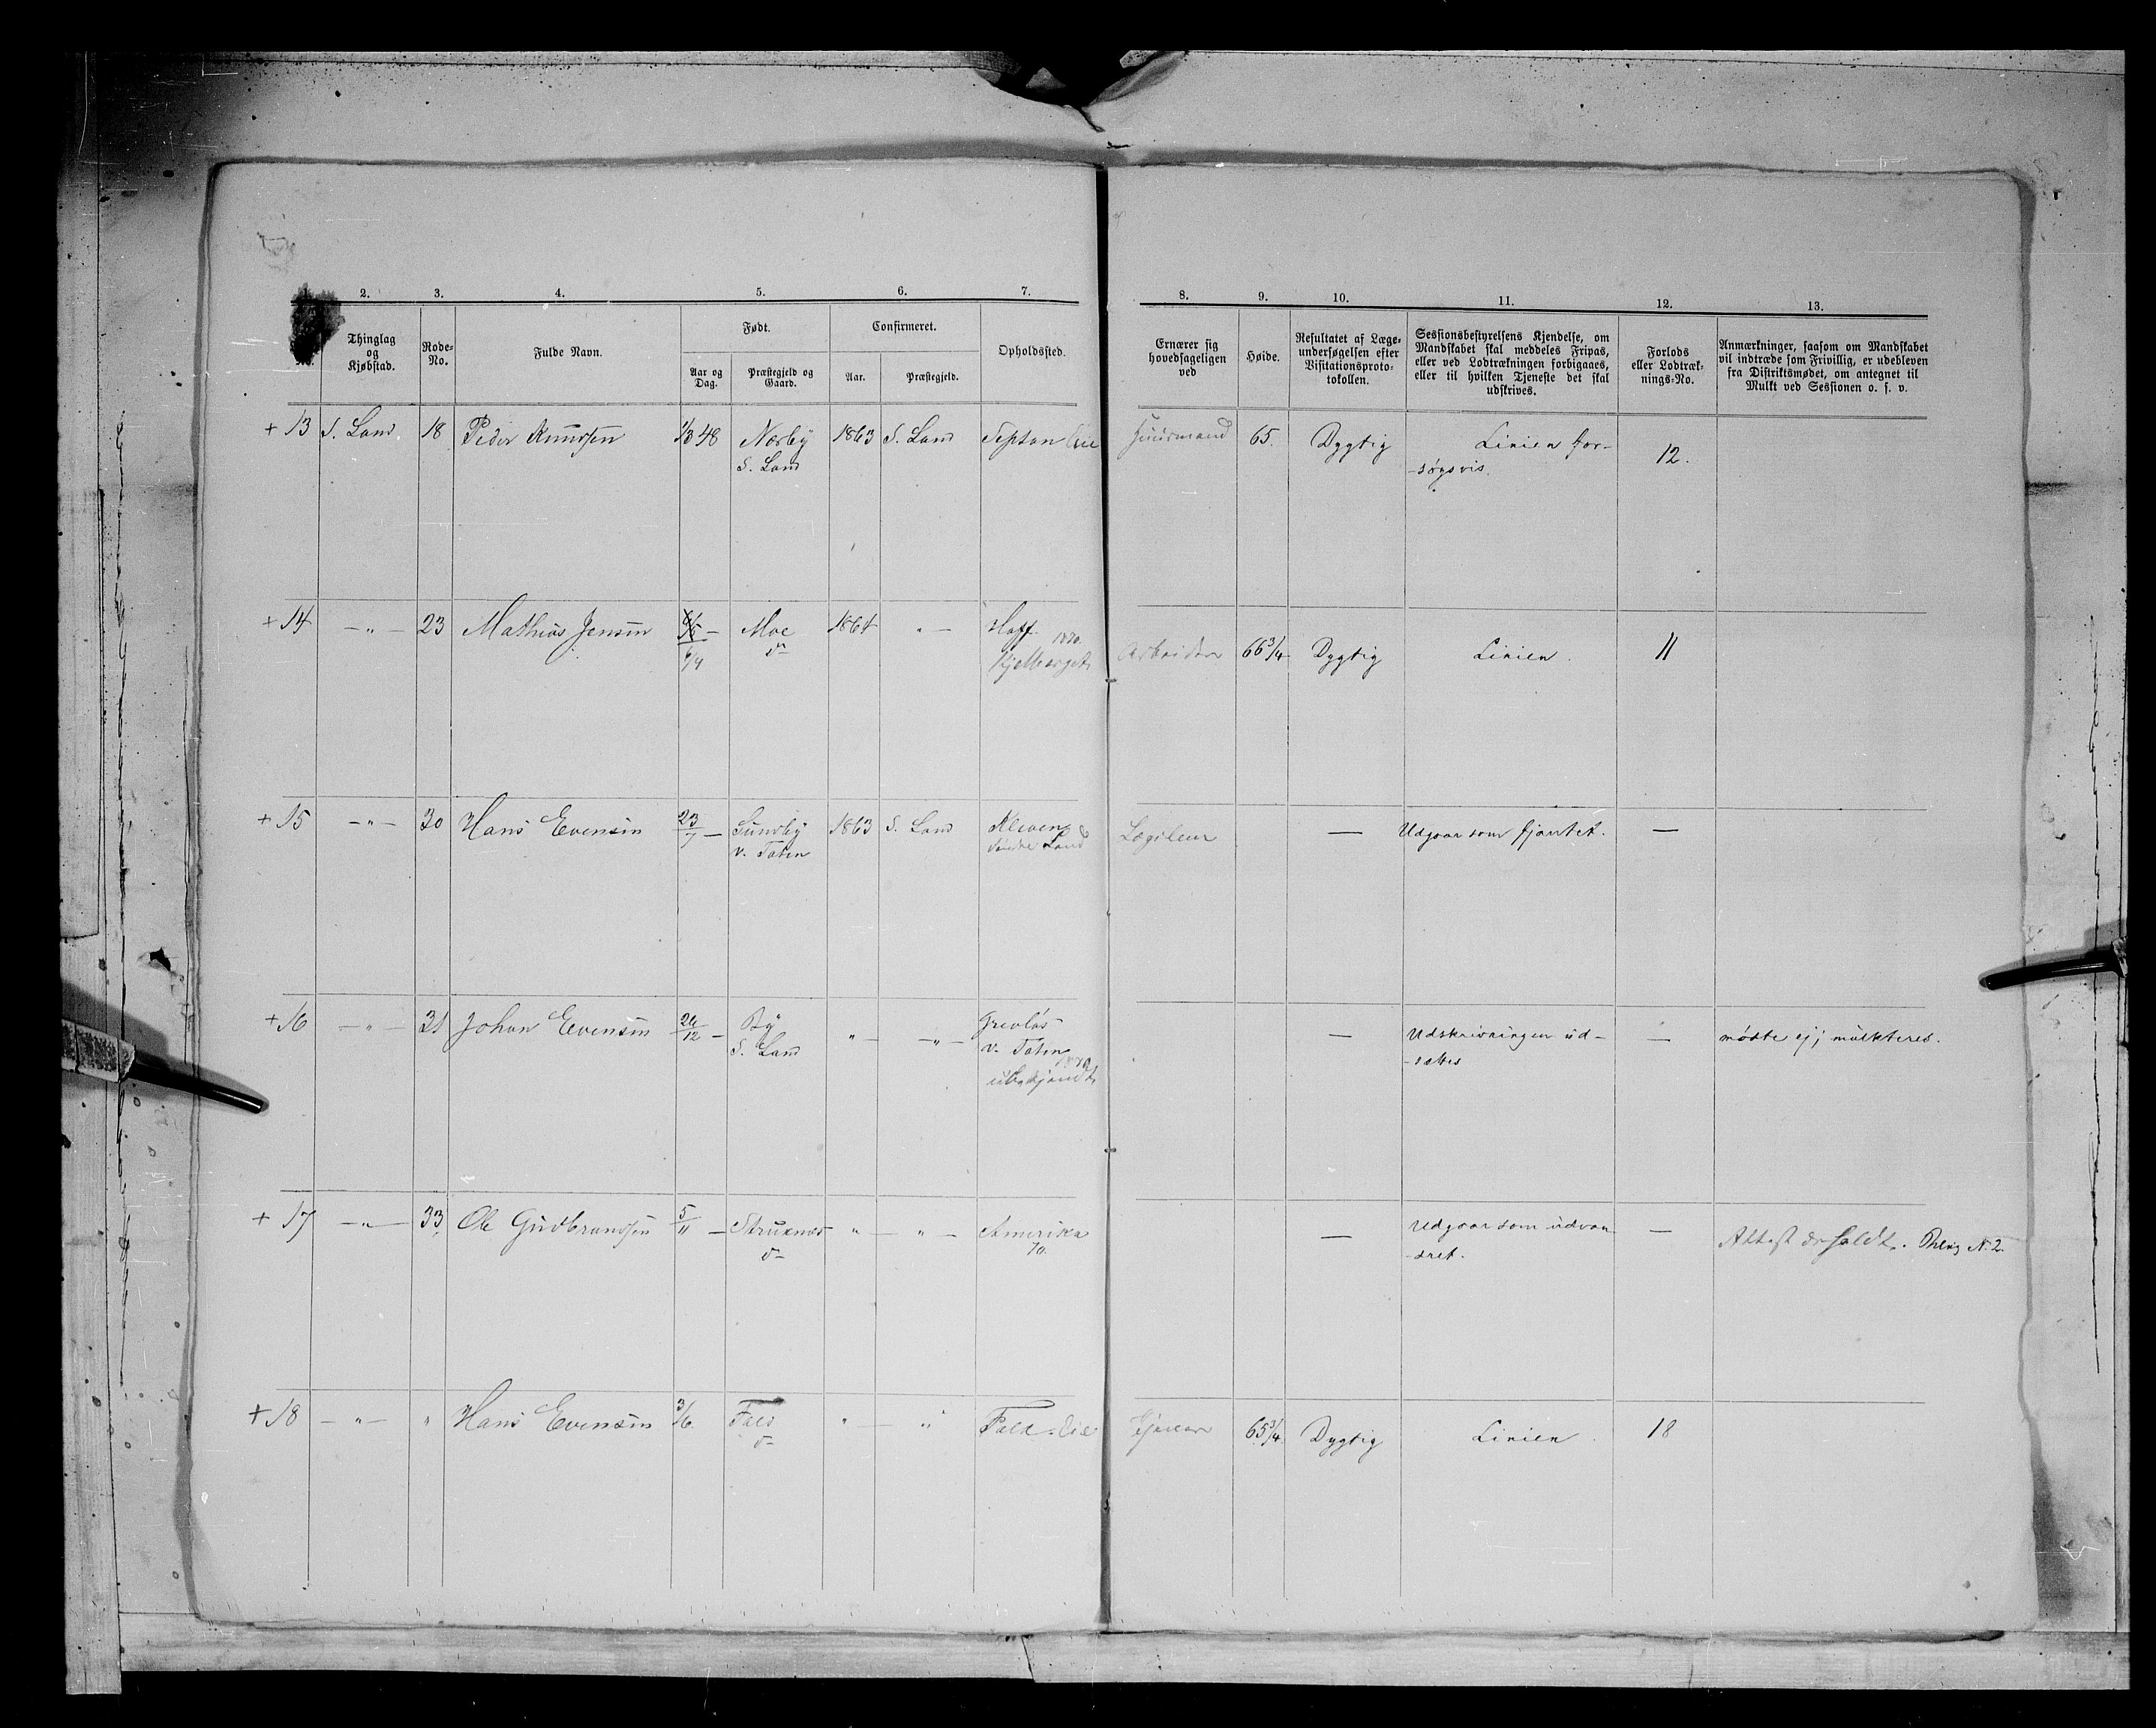 1. 2. 3. 4. 5. 6. 7. 8. 9. 10. 11. 12. 13.
No.
Thinglag
og
Kjøbstad.
Rode-
No.
Fulde Navn.
Født.
Aar og
Dag.
Præstegjeld og
Gaard.
Confirmeret.
Aar.
Præstegjeld.
Opholdssted.
Ernærer sig
hovedsageligen
ved
Høide.
Resultatet af Læge-
undersøgelsen efter
Visitationsproto-
tokollen.
Sessionsbestyrelsens Kjendelse, om
Mandskabet skal meddeles Fripas,
eller ved Lodtrækningen forbigaaes,
eller til hvilken Tjeneste det skal
udskrives.
Forlods
eller Lodtræk-
nings-No.
Anmærkninger, saasom om Mandskabet
vil indtræde som Frivillig, er udebleven
fra Distriktsmødet, om antegnet til
Mulkt ved Sessionen o. s. v.
+ 13 S. Land 18 Peder Knudsen 1/3 48 Nørby 1863 S. Land 65. Dygtig Linien for-
S. Land -søgsvis. 12.
+ 14 — " — 23 Mathias Jensen — Moe 1864 " — Hoff 1870 Arbeider 66 3/4 Dygtig Linien. 11
+ 15 — " — 30 Hans Evensen 23/7 — Sundby 1863 S. Land Kleven — Udgaar som — 
v. Toten Søndre Land
+ 16 — " — 31 Johan Evensen 26/12 — By " — — " — — Udskrivningen ud- — mødte ej; mulkteres.
S. Land v. Toten -sættes
1870
ubekjendt
+ 17 — " — 33 Ole Gudbrandsen 5/11 — " — " — Amerika — Udgaar som udvan- —
70. -dret. Attest N. 2.
+ 18 — " — " Hans Evensen 3/6 " — " 65 3/4 Dygtig Linien. 18